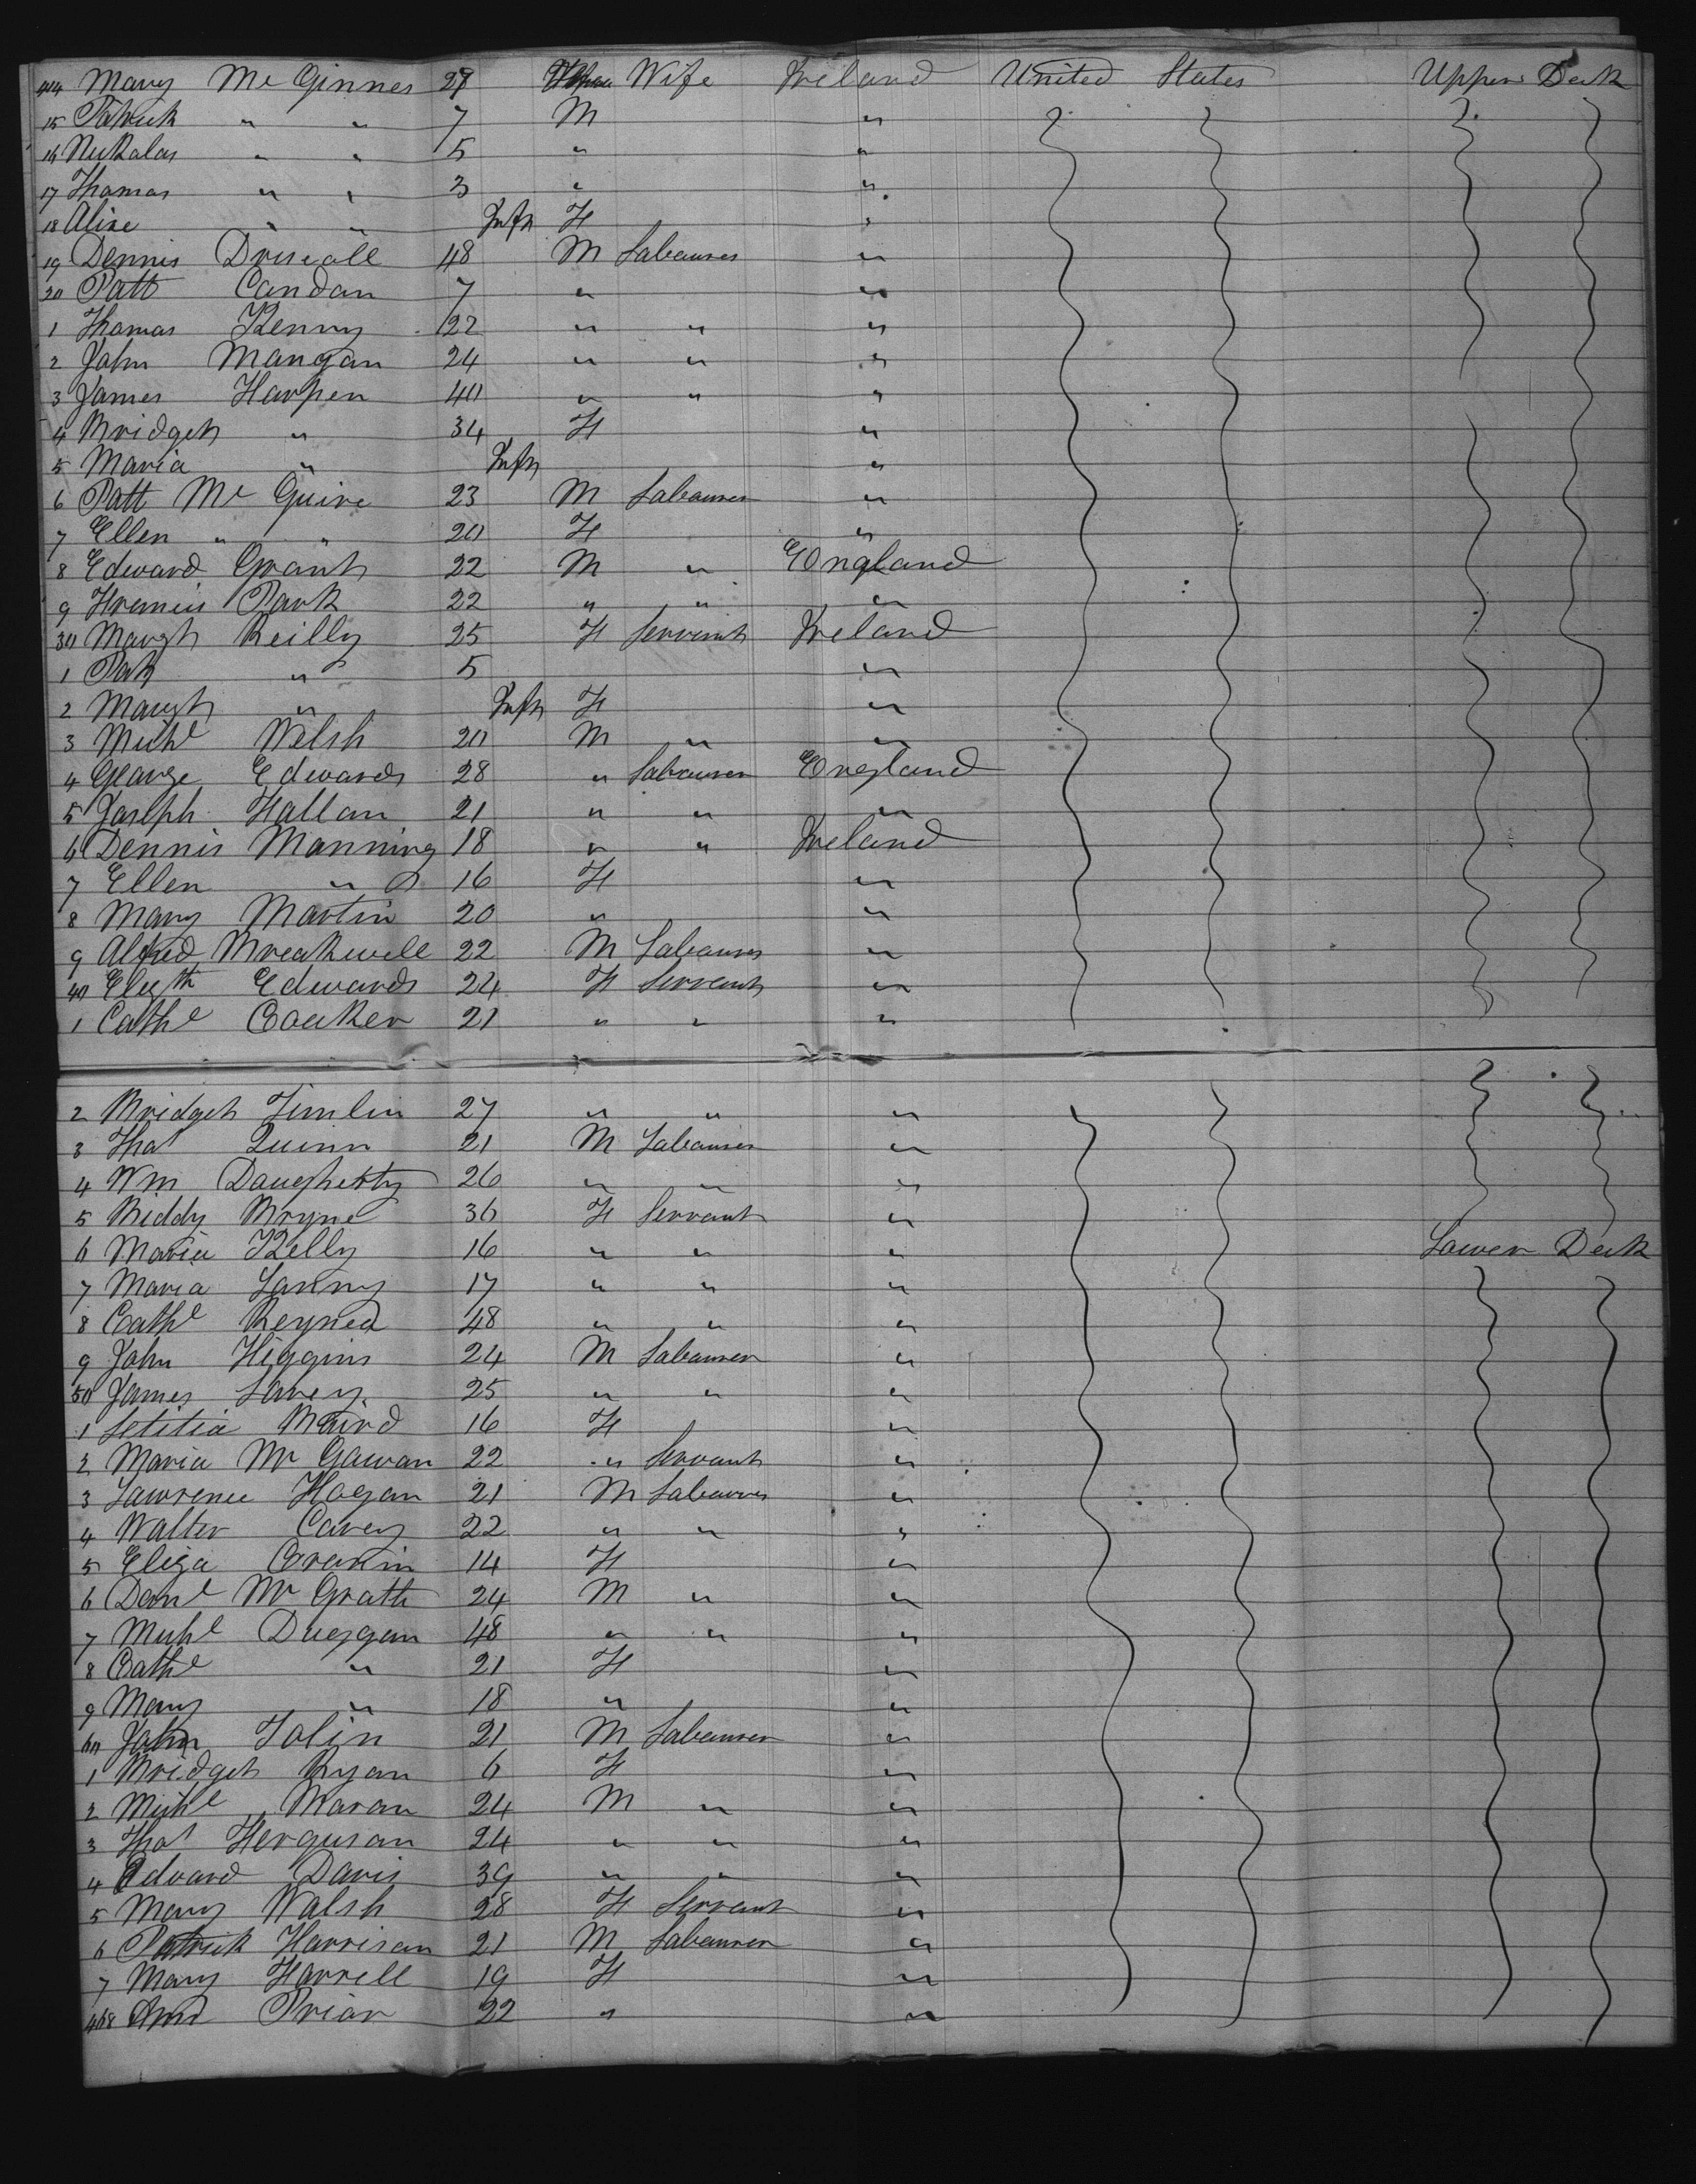 414 Mary Mc Ginnes 27 Wife Ireland United States Upper Deck
15 Patrick " " 7 M "
16 Nickolas " " 5 " "
17 Thomas " " 3 " "
18 Alice " " Inft F "
19 Dennis Driscoll 48 M Labourer "
20 Patt Condon 7 " "
1 Thomas Kenny 22 " " "
2 John Mangan 24 " " "
3 James Harpen 40 " " "
4 Bridget " 34 F "
5 Maria " Inft "
6 Patt Mc Guire 23 M Labourer "
7 Ellen " " 20 F "
8 Edward Grant 22 M " England
9 Francis Park 22 " " "
30 Margt Reilly 25 F Servant Ireland
1 Pat " 5 "
2 Margt " Inft F "
3 Michl Welsh 20 M " "
4 George Edwards 28 " Labourer England
5 Joseph Hallan 21 " " "
6 Dennis Manning 18 " " Ireland
7 Ellen " 16 F "
8 Mary Martin 20 " "
9 Alfred Breakwell 22 M Labourer "
40 Elizth Edwards 24 F Servant "
1 Cathe Coaker 21 " " "
2 Bridget Timlin 27 " " "
3 Thos Quinn 21 M Labourer "
4 Wm Daughetty 26 " " "
5 Biddy Bryne 36 F Servant "
6 Maria Kelly 16 " " " Lower Deck
7 Maria Lanny 17 " " "
8 Cathe 48 " " "
9 John Higgins 24 M Labourer "
50 James Lavey 25 " " "
1 Letitia Baird 16 F "
2 Maria Mc Gowan 22 " Servant "
3 Lawrence Hogan 21 M Labourer "
4 Walter Carey 22 " " "
5 Eliza Cronin 14 F "
6 Danl Mc Grath 24 M " "
7 Michl Duggan 48 " " "
8 Cathe " 21 F "
9 Mary " 18 " "
60 John Tolin 21 M Labourer "
1 Bridget Ryan 6 F "
2 Michl Moran 24 M " "
3 Thos Ferguson 24 " " "
4 Edward Davis 39 " " "
5 Mary Walsh 28 F Servant "
6 Patrick Harrison 21 M Labourer "
7 Mary Farrell 19 F "
468 Prior 22 " "